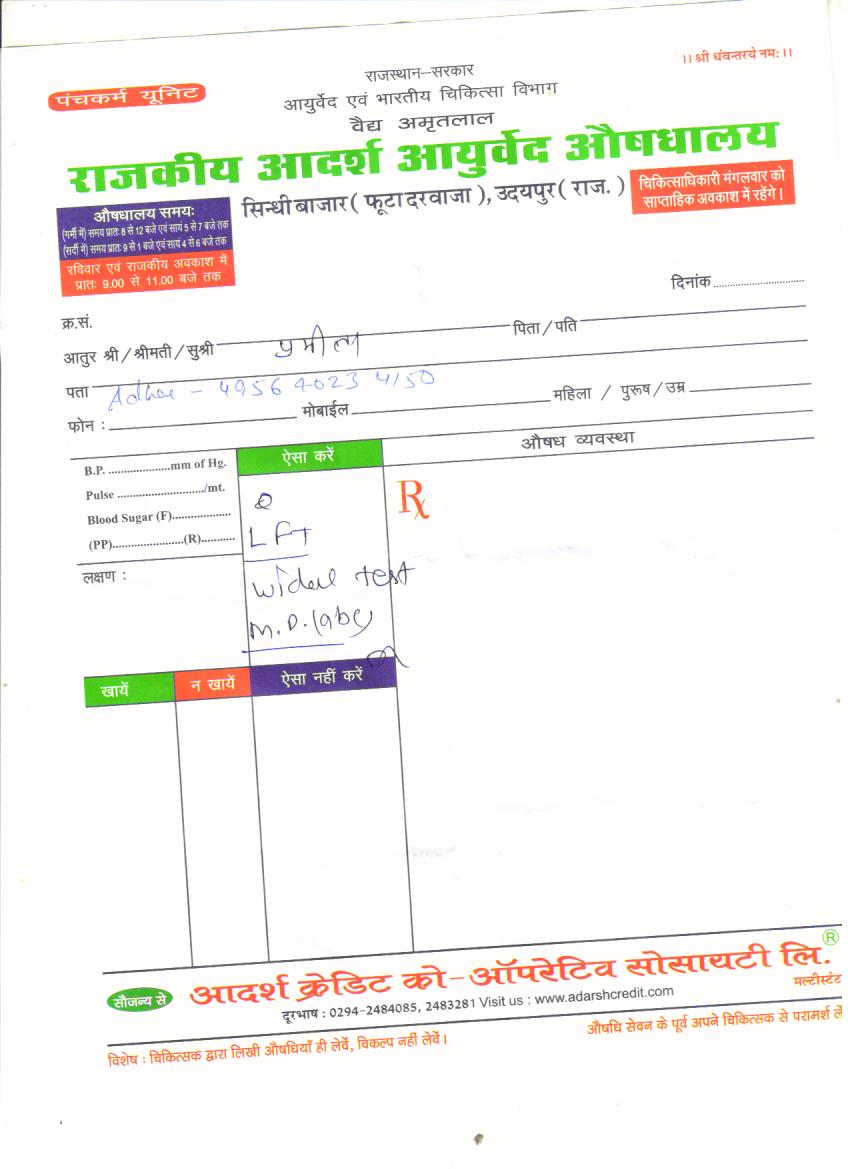 ।। श्री धंवन्तरये नमः ।।
राजस्थान–सरकार
पंचकर्म यूनिट
आयुर्वेद एवं भारतीय चिकित्सा विभाग
वैद्य अमृतलाल
राजकीय आदर्श आयुर्वेद औषधालय
सिन्धी बाजार ( फूटा दरवाजा ), उदयपुर ( राज. )
चिकित्साधिकारी मंगलवार को
साप्ताहिक अवकाश में रहेंगे ।
औषधालय समयः
(गर्मी में) समय प्रातः 8 से 12 बजे एवं सायं 5 से 7 बजे तक
(सर्दी में) समय प्रातः 9 से 1 बजे एवं सायं 4 से 6 बजे तक
रविवार एवं राजकीय अवकाश में
प्रातः 9.00 से 11.00 बजे तक
दिनांक
क्र.सं.
आतुर श्री / श्रीमती / सुश्री प्रमीला पिता / पति
पता Adhar - 4956 4023 4150
फोन : मोबाईल महिला / पुरूष / उम्र
B.P. ....................mm of Hg.
Pulse ............................/mt.
Blood Sugar (F)...................
(PP).......................(R)...........
लक्षण :
ऐसा करें
LFT
widal test
M.P. (abc)
औषध व्यवस्था
Rx
खायें न खायें ऐसा नहीं करें
सौजन्य से आदर्श क्रेडिट को–ऑपरेटिव सोसायटी लि. ®
मल्टीस्टेट
दूरभाष : 0294-2484085, 2483281 Visit us : www.adarshcredit.com
विशेष : चिकित्सक द्वारा लिखी औषधियाँ ही लेवें, विकल्प नहीं लेवें ।
औषधि सेवन के पूर्व अपने चिकित्सक से परामर्श ले